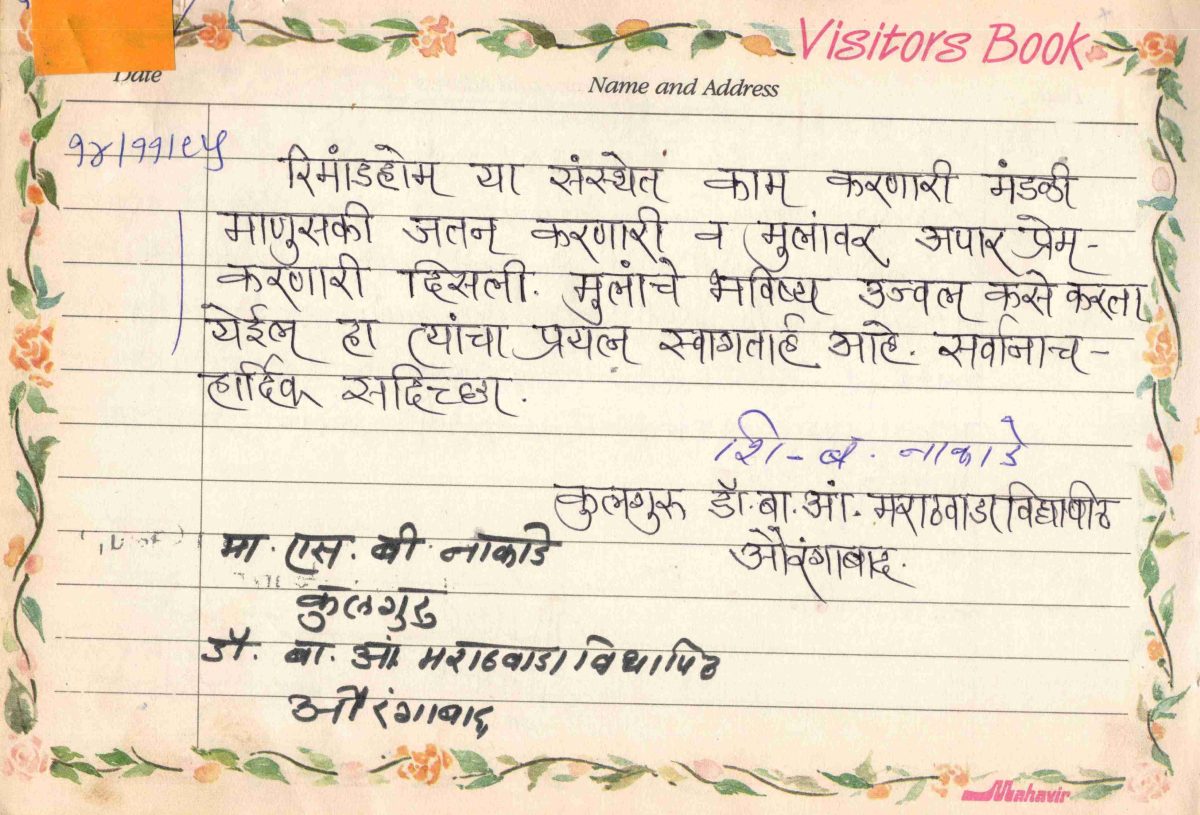 Visitors Book
Date
Name and Address
१४/११/९५
रिमांडहोम या संस्थेत काम करणारी मंडळी
माणुसकी जतन करणारी व मुलांवर अपार प्रेम-
करणारी दिसली. मुलांचे भविष्य उज्वल कसे करता
येईल हा त्यांचा प्रयत्न स्वागतार्ह आहे. सर्वानाच -
हार्दिक सदिच्छा.
शि - ब. नाकाडे
कुलगुरू डॉ. बा. आं. मराठवाडा विद्यापीठ
औरंगाबाद.
मा. एस. बी. नाकाडे
कुलगुरु
डॉ. बा. आं. मराठवाडा विद्यापिठ
औरंगाबाद
Mahavir